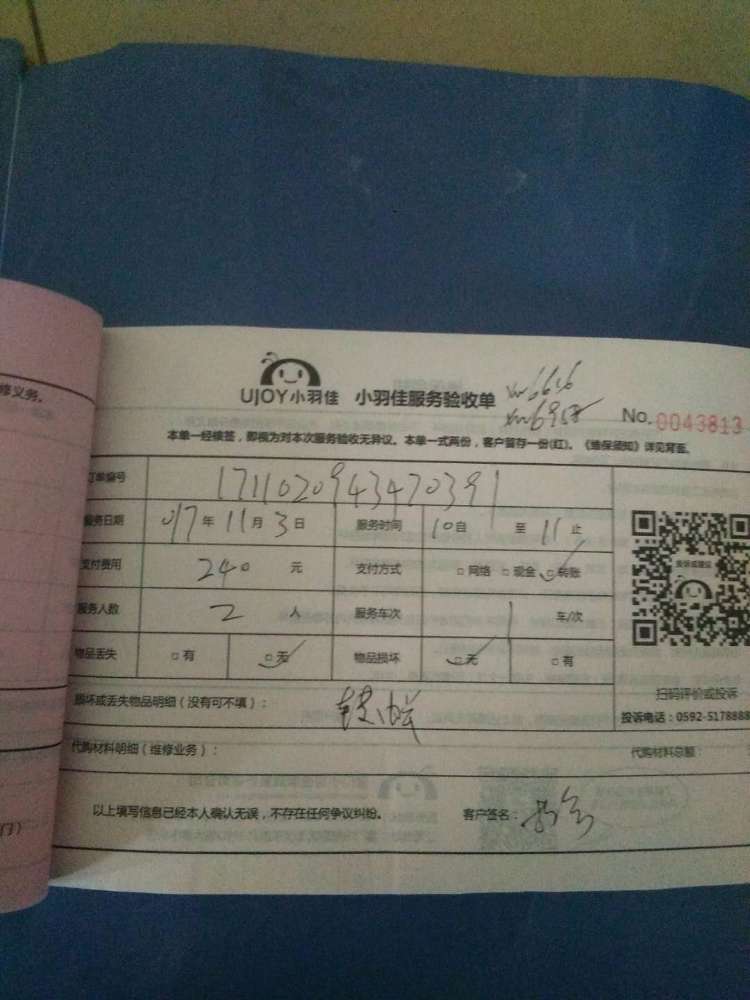 修义务。
UJOY小羽佳 小羽佳服务验收单
No. 0043813
本单一经接签，即视为对本次服务验收无异议。本单一式两份，客户留存一份(红)。《维保须知》详见背面。
订单编号 1711020943470391
服务日期 017年11月3日 服务时间 10自 至 11止
支付费用 240 元 支付方式 □网络 □现金 □转账
投诉或建议
服务人数 2 人 服务车次 1 车/次
物品丢失 □有 □无 物品损坏 □无 □有
扫码评价或投诉
损坏或丢失物品明细（没有可不填）：
投诉电话：0592-5178888
代购材料明细（维修业务）： 代购材料总额：
以上填写信息已经本人确认无误，不存在任何争议纠纷。 客户签名：